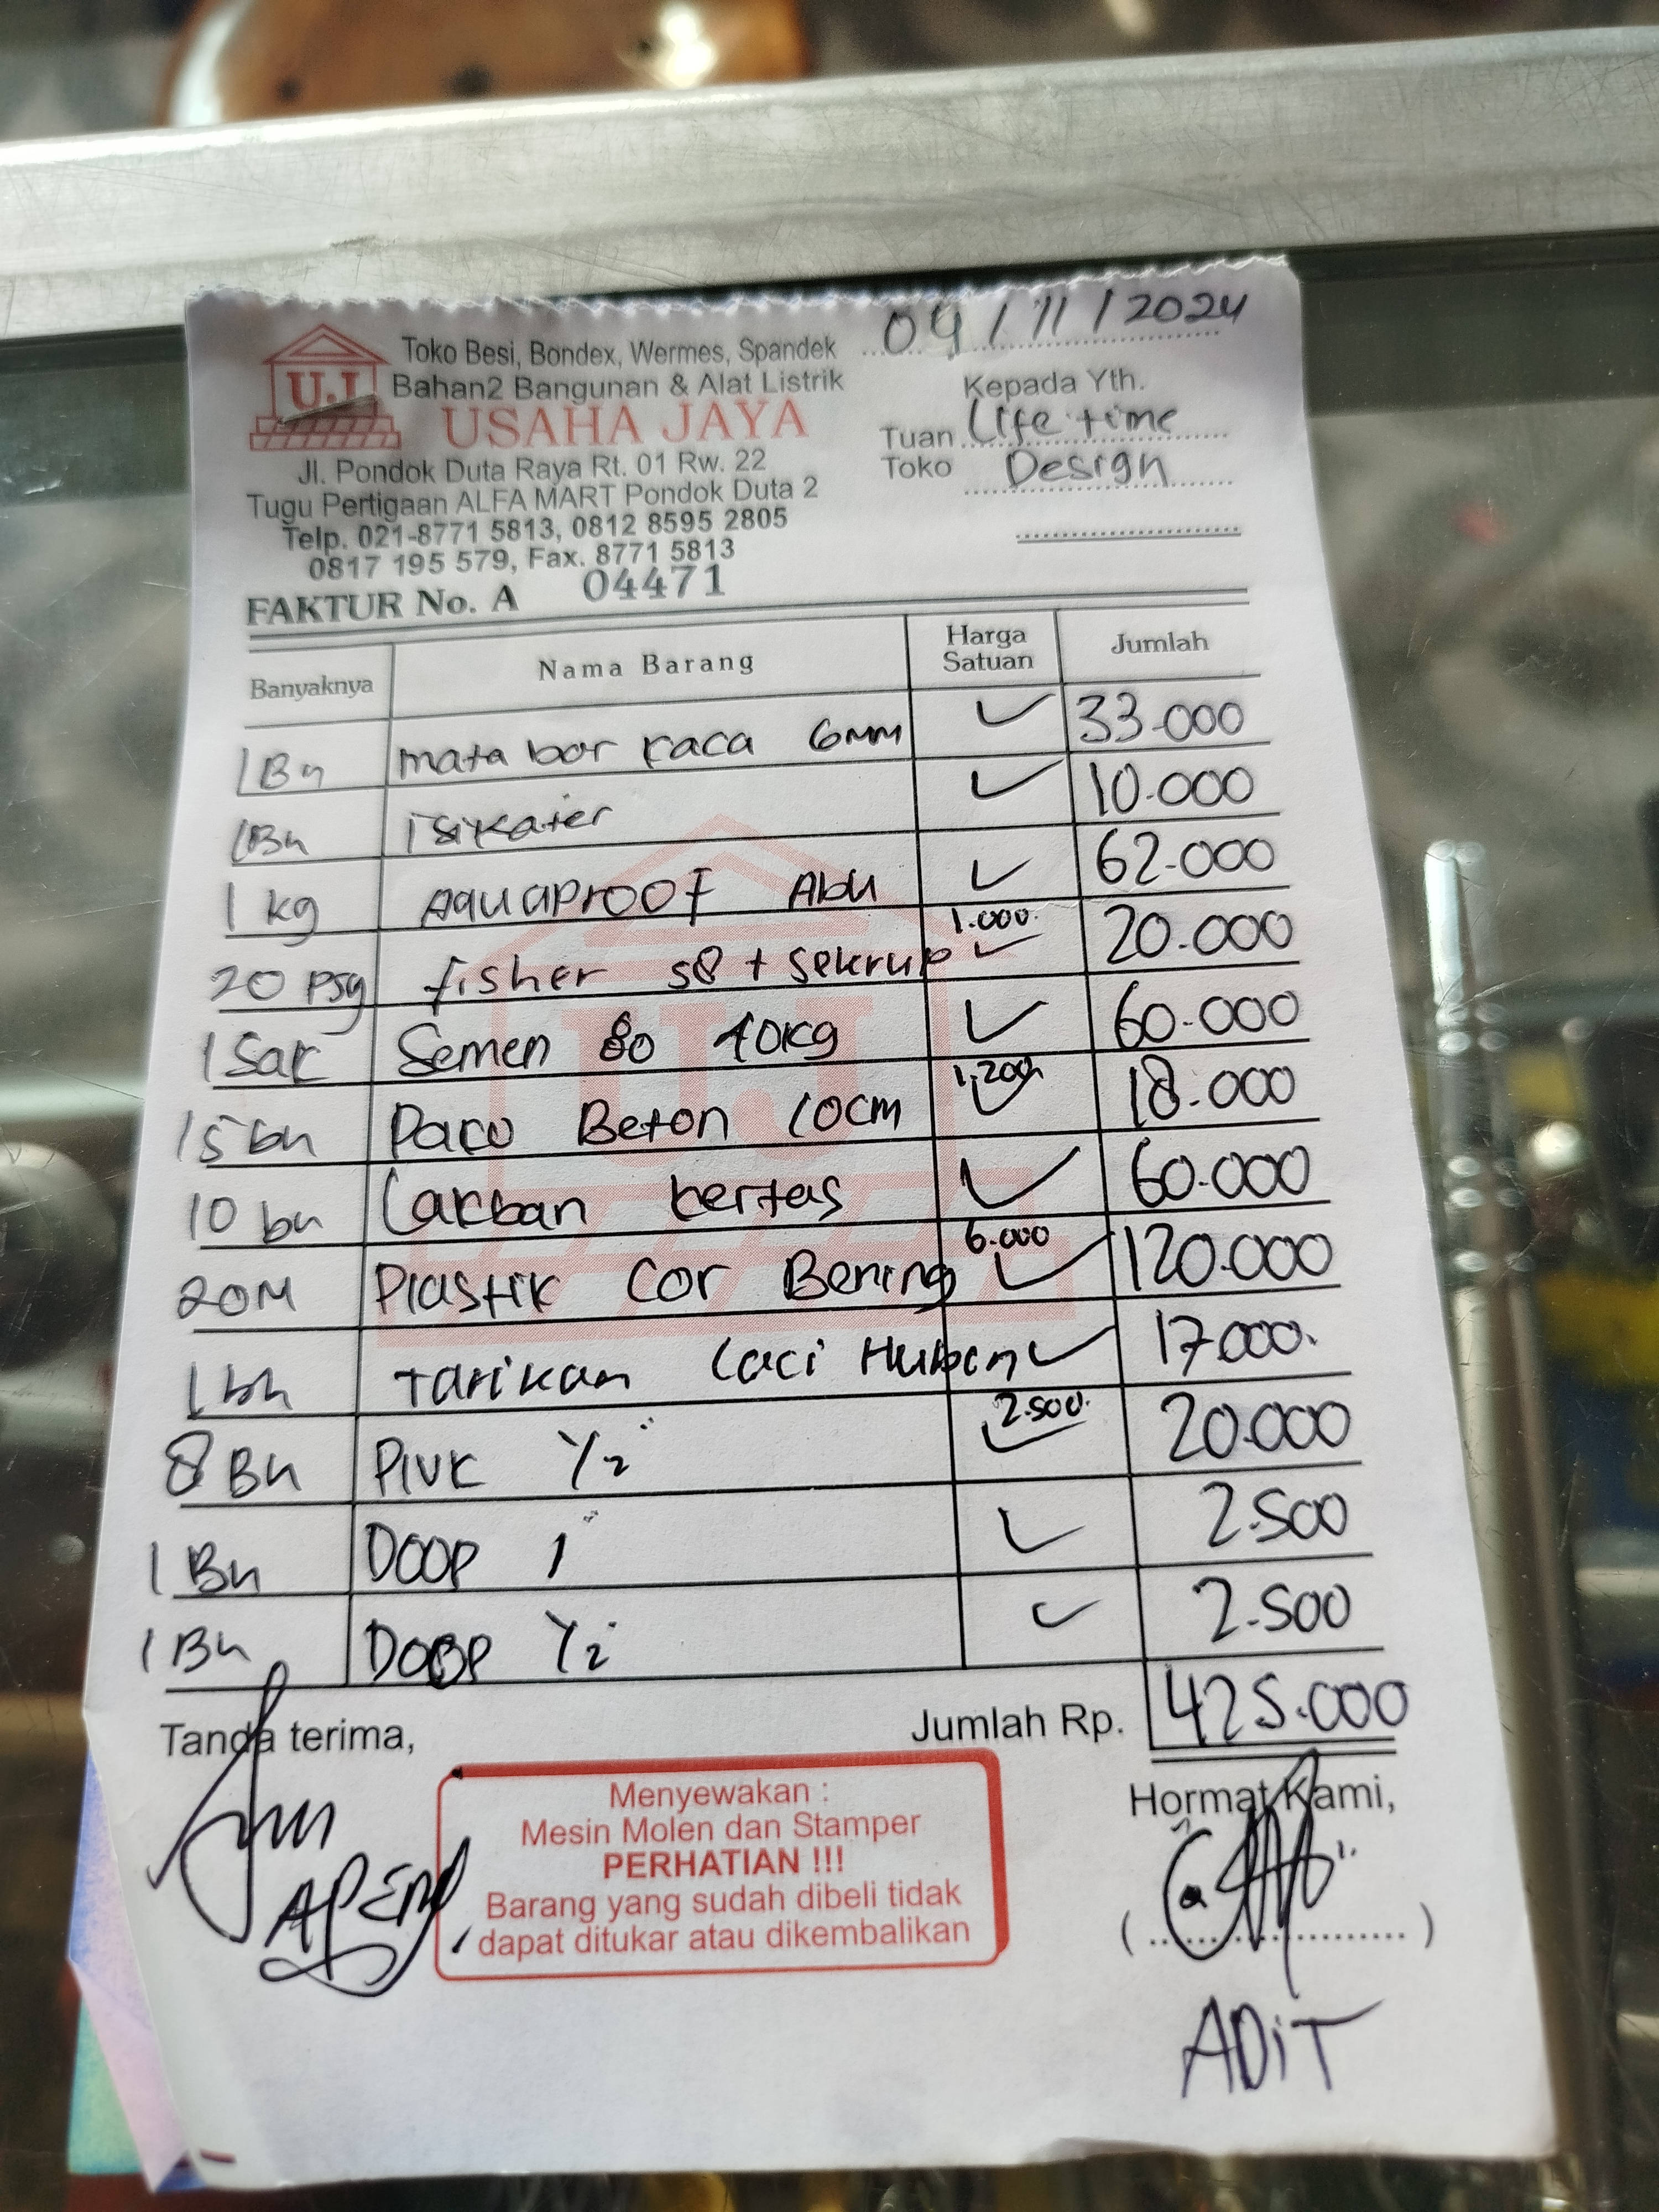 04/11/2024
U.J
Toko Besi, Bondex, Wermes, Spandek
Bahan2 Bangunan & Alat Listrik
USAHA JAYA
Jl. Pondok Duta Raya Rt. 01 Rw. 22
Tugu Pertigaan ALFA MART Pondok Duta 2
Telp. 021-8771 5813, 0812 8595 2805
0817 195 579, Fax. 8771 5813
Kepada Yth.
Tuan Life time
Toko Design
FAKTUR No. A 04471
Banyaknya Nama Barang Harga Satuan Jumlah
1 Bh mata bor kaca 6MM 33.000
1 Bh isi kater 10.000
1 kg Aquaproof Abu 62.000
20 psg fisher s8 + sekrup 1.000 20.000
1 Sak Semen 80 40kg 60.000
15 bh Paku Beton 10cm 1.200 18.000
10 bh Lakban kertas 60.000
20M Plastik Cor Bening 6.000 120.000
1 bh tarikan laci Huben 17.000
8 Bh PIVK 1/2" 2.500 20.000
1 Bh DOOP 1" 2.500
1 Bh DOOP 1/2 2.500
Jumlah Rp. 425.000
Tanda terima,
Hormat Kami,
Menyewakan :
Mesin Molen dan Stamper
PERHATIAN !!!
Barang yang sudah dibeli tidak
dapat ditukar atau dikembalikan
ADIT